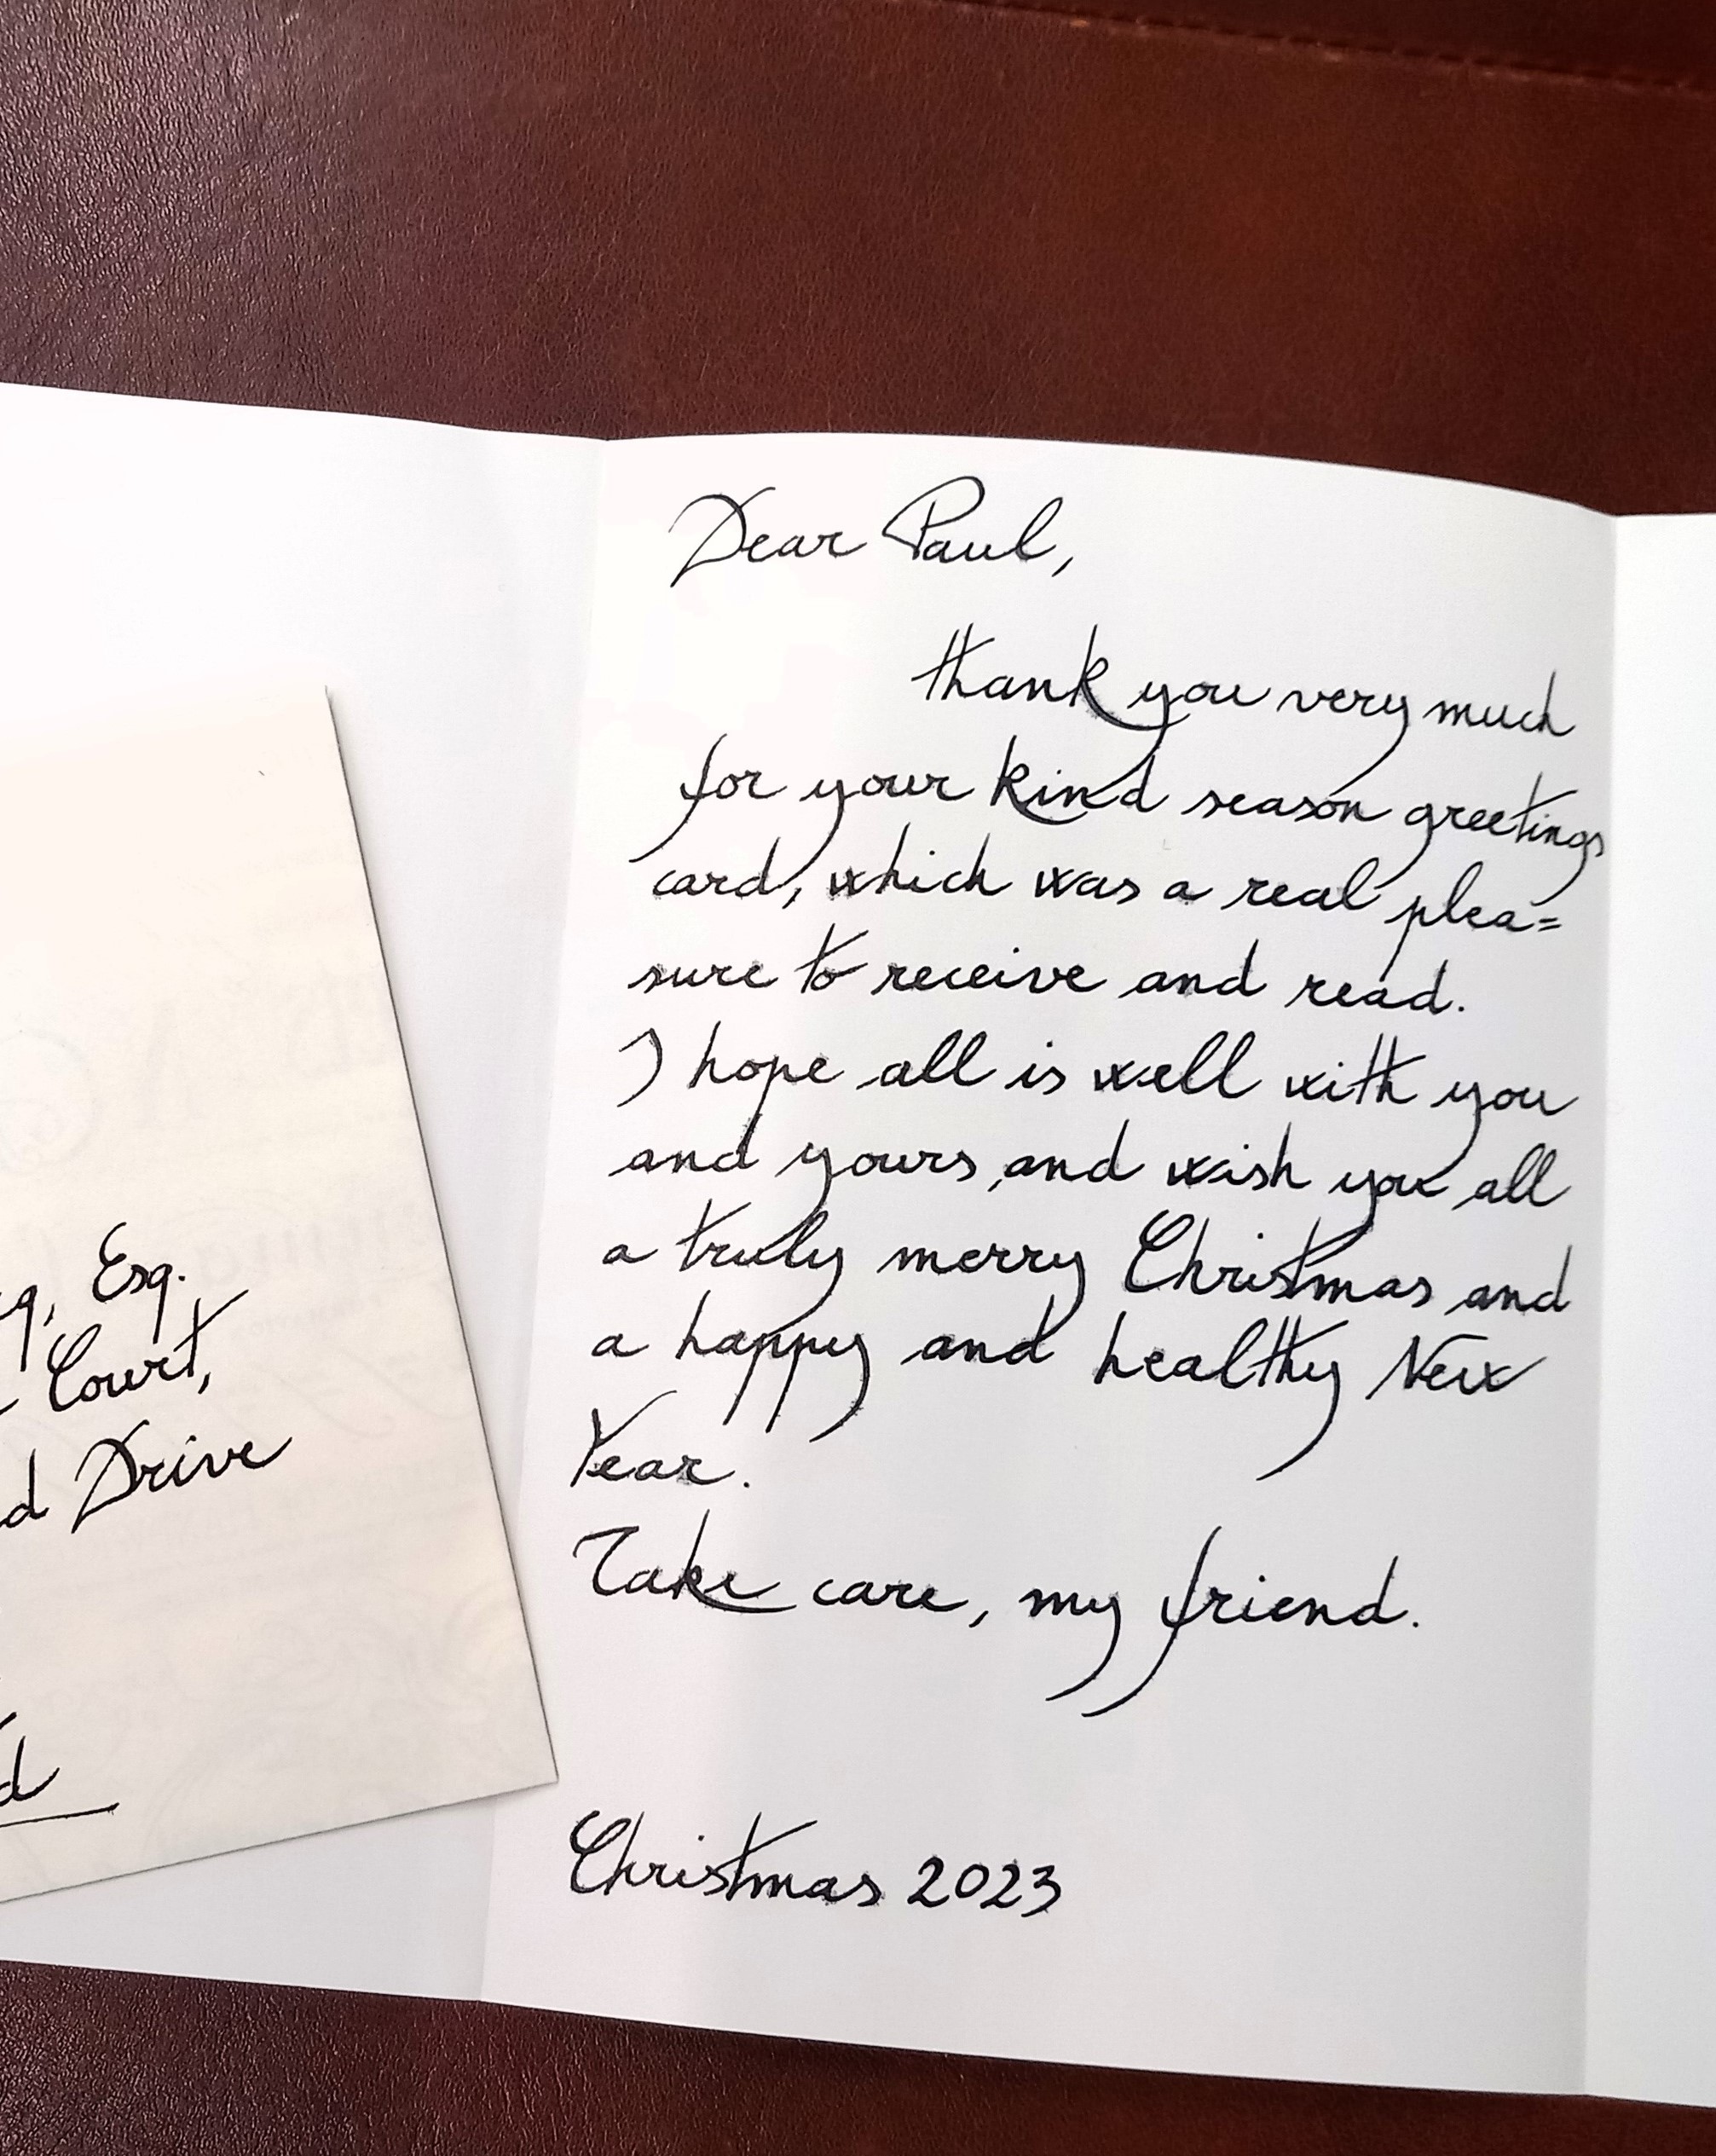 Dear Paul,
thank you very much
for your kind season greetings
card, which was a real plea=
sure to receive and read.
I hope all is well with you
and yours, and wish you all
a truly merry Christmas and
a happy and healthy New
Year.
Take care, my friend.
Christmas 2023
Esq.
Court,
Drive